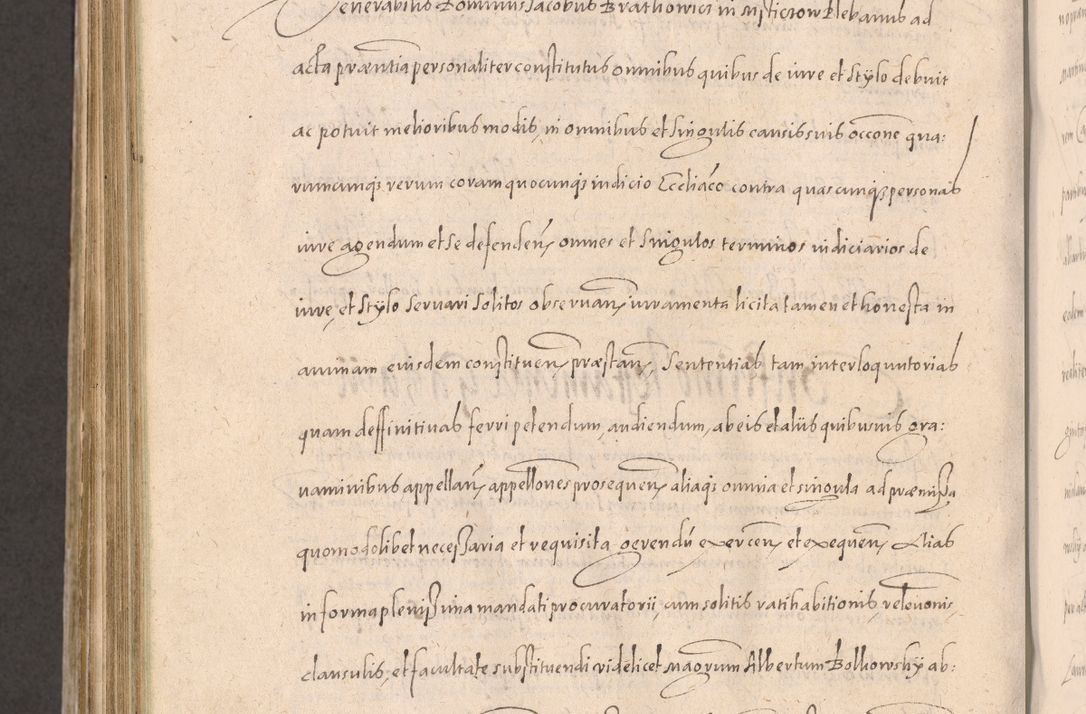 Venerabilis Dominus Jacobus Brathowicz in Msticzow Plebanus ad
acta præntia personaliter constitutus omnibus quibus de iure et stÿlo debuit
ac potuit melioribus modis, in omnibus et singulis causis suis occone qua:
rumcunq3 rerum coram quocunq3 iudicio Eccliaco contra quascunq3 personas
iure agendum et se defenden, omnes et singulos terminos iudiciarios de
iure, et stÿlo servari solitos observan, iuramenta licita tamen et honesta in
animam eiusdem constituen, præstan, Sententias tam interloquutorias
quam deffinitivas ferri petendum, audiendum, ab eis et aliis quibusvis gra:
vaminibus appellan, appellones prosequen, aliaq3 omnia et singula ad præmissa
quomodolibet necessaria et requisita gerendũ exercen, et exequen, Alias
in forma plenissima mandati procuratorii, cum solitis ratihabitionis, relevonis,
clausulis, et facultate substituendi videlicet Magrum Albertum Bolkowskÿ ab: